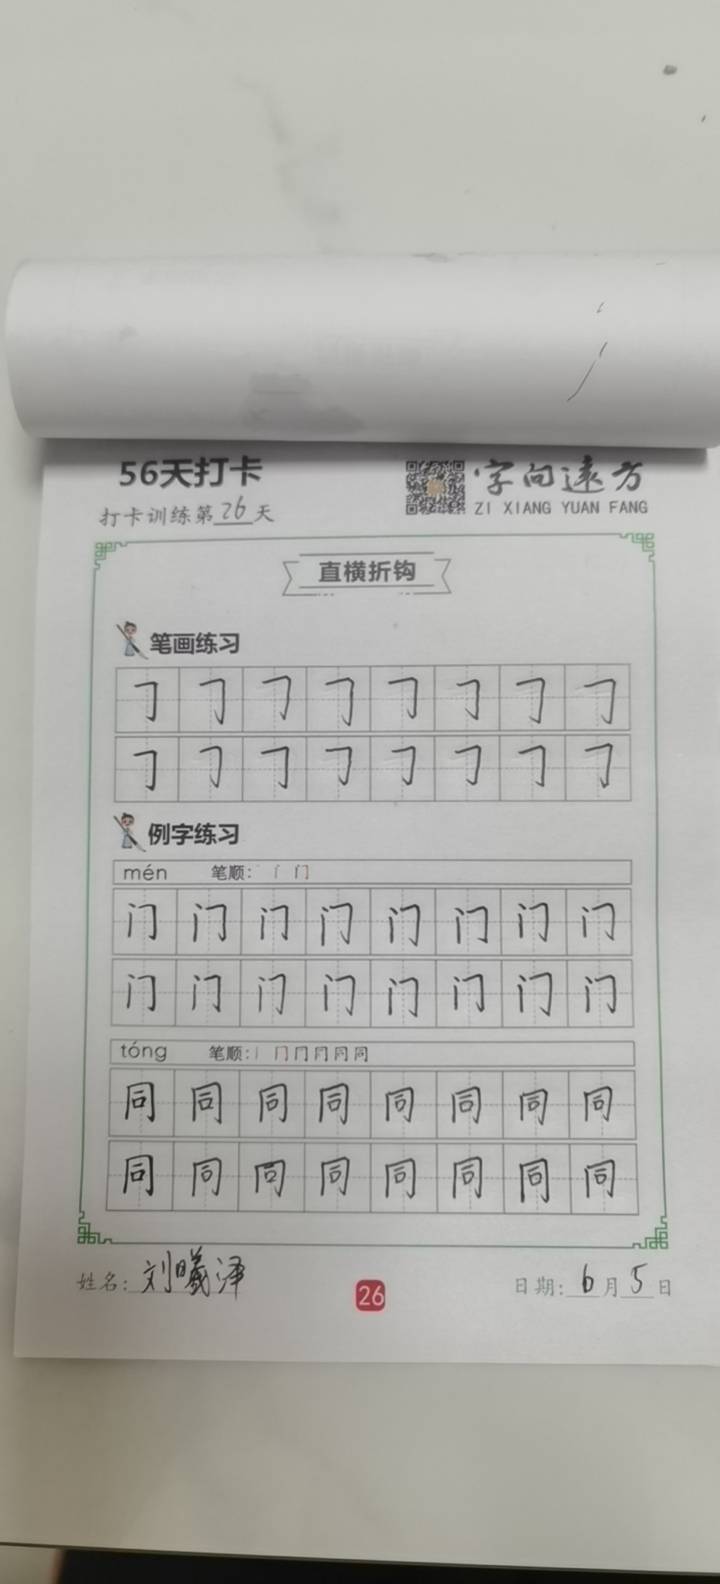 56天打卡
字向远方
打卡训练第26天
ZI XIANG YUAN FANG
直横折钩
笔画练习
㇆㇆㇆㇆㇆㇆㇆㇆
㇆㇆㇆㇆㇆㇆㇆㇆
例字练习
mén 笔顺: 丶 门
门门门门门门门门
门门门门门门门门
tóng 笔顺: 丨 冂
同同同同同同同同
同同同同同同同同
姓名: 刘曦泽
26
日期: 6月5日